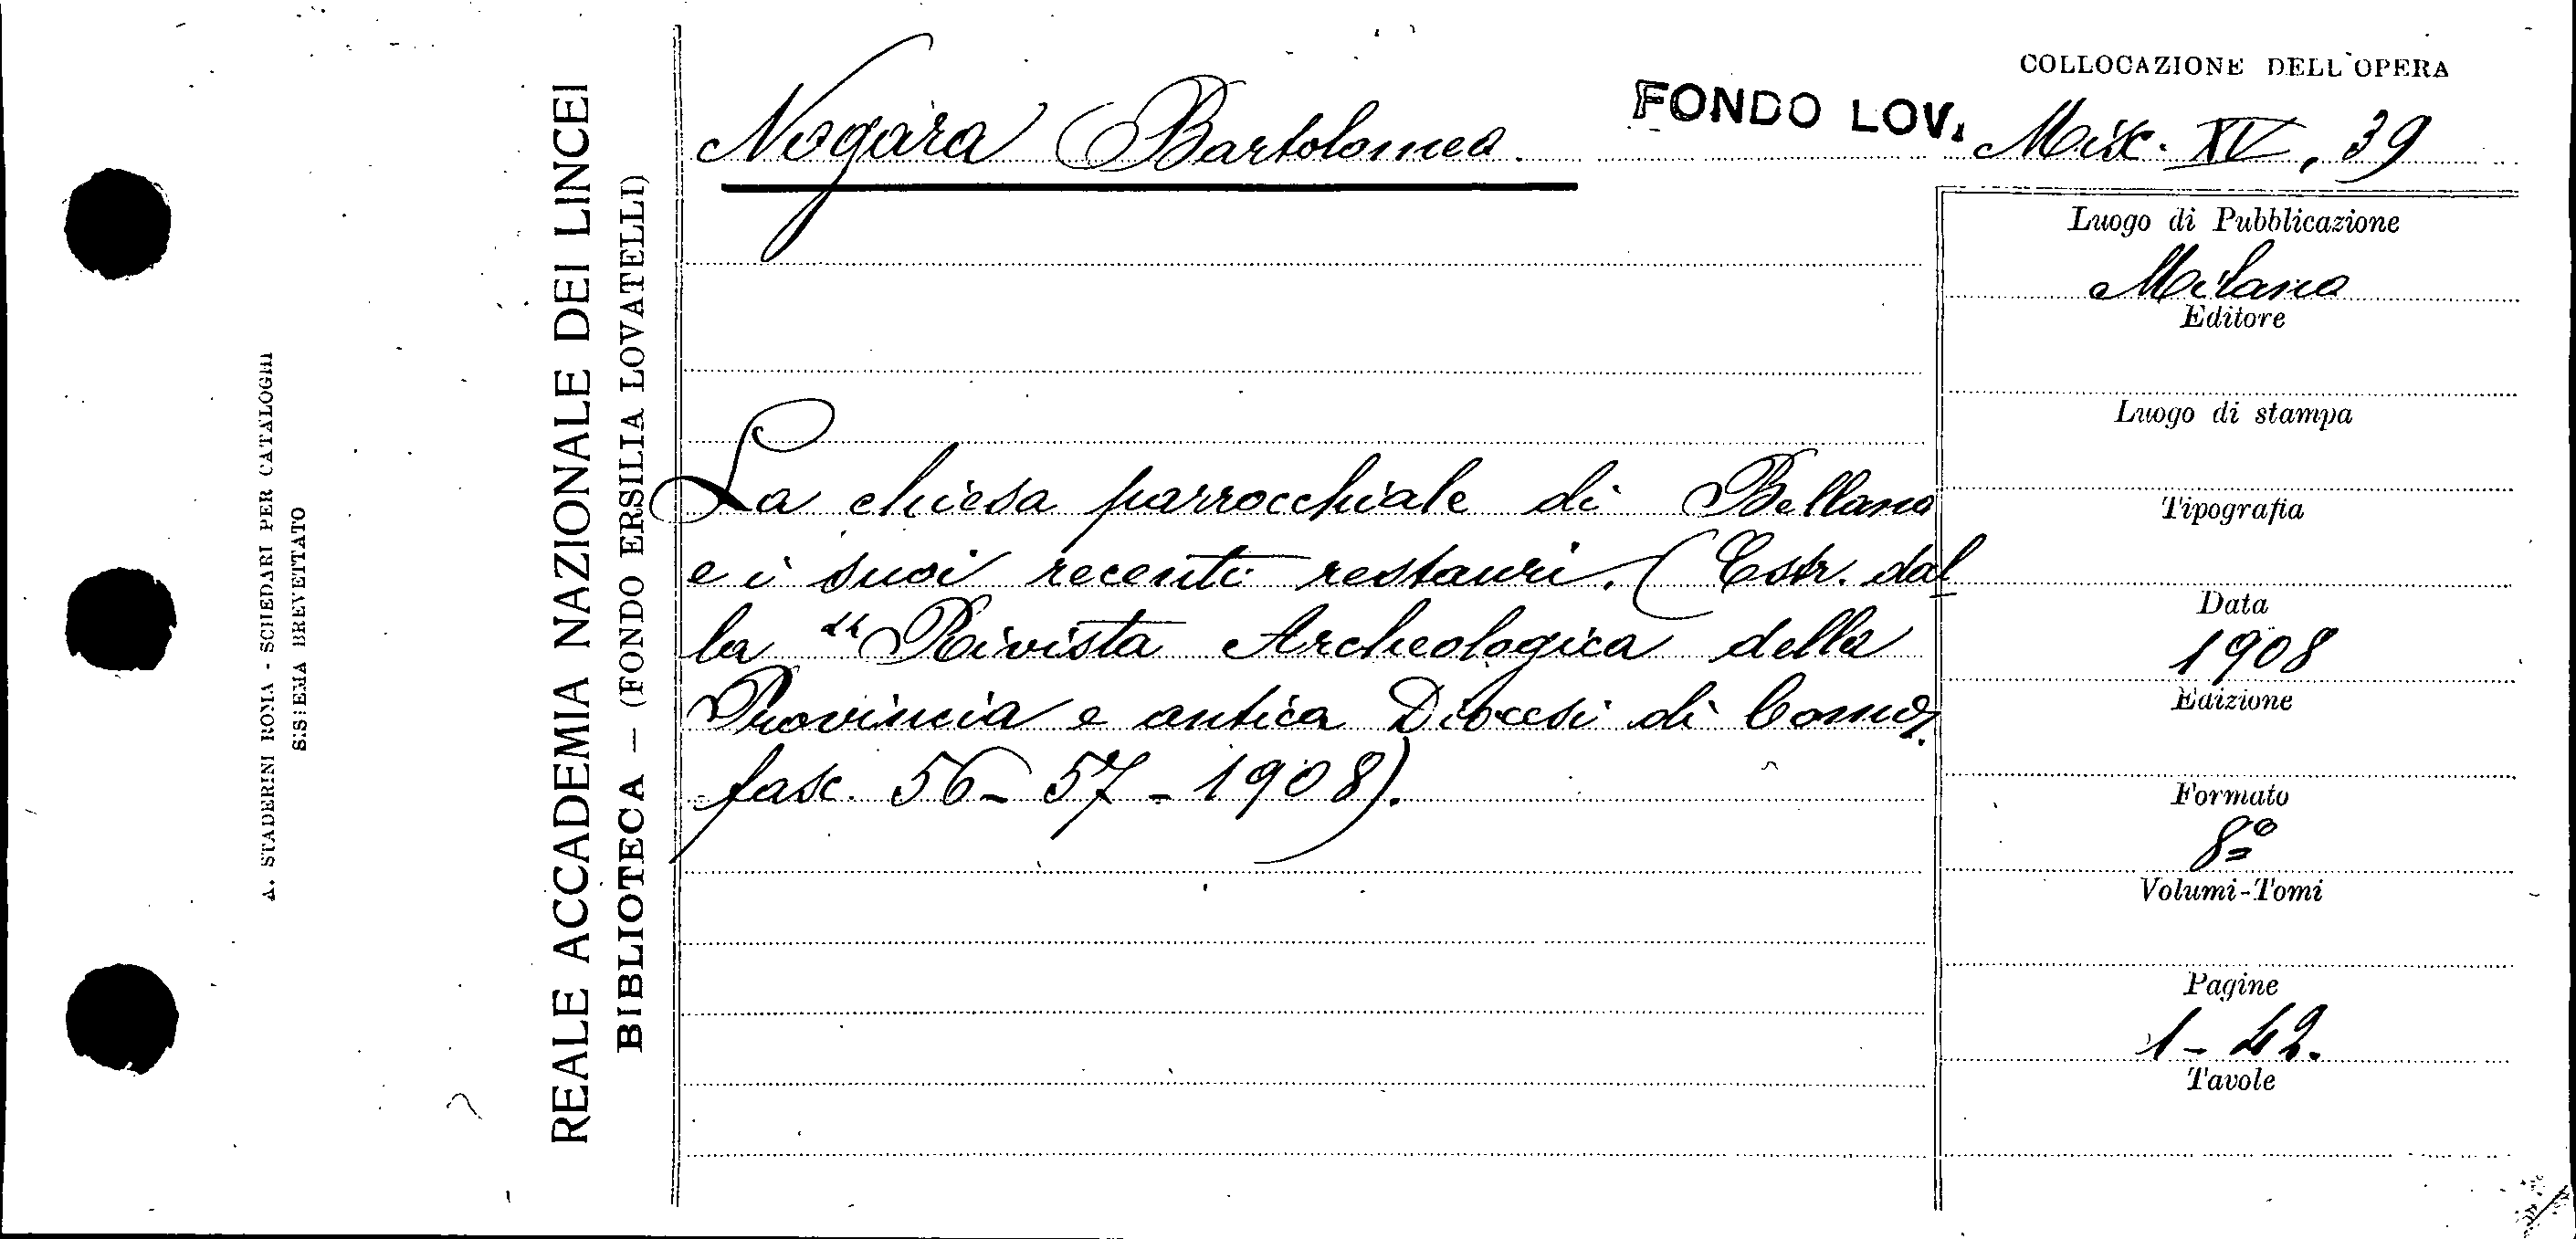 A. STADERINI ROMA - SCHEDARI PER CATALOGHI
SISTEMA BREVETTATO
REALE ACCADEMIA NAZIONALE DEI LINCEI
BIBLIOTECA — (FONDO ERSILIA LOVATELLI)
COLLOCAZIONE DELL'OPERA
Nogara Bartolomeo.
FONDO LOV. Misc. XV, 39
La chiesa parrocchiale di Bellano
e i suoi recenti restauri. (Estr. dal
la "Rivista Archeologica della
Provincia e antica Diocesi di Como,
fasc. 56-57-1908).
Luogo di Pubblicazione
Milano
Editore
Luogo di stampa
Tipografia
Data
1908
Edizione
Formato
8º
Volumi-Tomi
Pagine
1-42.
Tavole